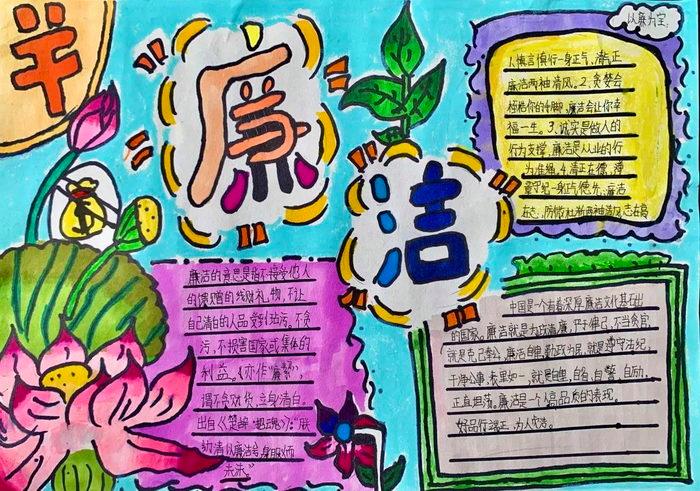 羊
廉
洁
以廉为宝
1.慎言慎行一身正气,清正
廉洁两袖清风。2.贪婪会
桎梏你的手脚,廉洁会让你幸
福一生。3.诚实是做人的
行为支撑,廉洁是从业的行
为准绳。4.清正在德,
廉洁
在志,
两袖清风志在高
廉洁的意思是指不接受他人
的馈赠的钱财礼物,不让
自己清白的人品受到玷污。不贪
污,不损害国家或集体的
利益。《亦作“廉絜”,
谓不贪财货,立身清白。
出自《楚辞·招魂》:“朕
幼清以廉洁兮,身服义而
未沬”
中国是一个有着深厚廉洁文化基础
的国家。廉洁就是为政清廉,严于律己,不当贪官,
就是克己奉公,廉洁自律,勤政为民,就是遵守法纪,
干净公事,表里如一,就是自律,自省,自警,自励,
正直坦荡。廉洁是一个人高品质的表现。
好品行端正,为人